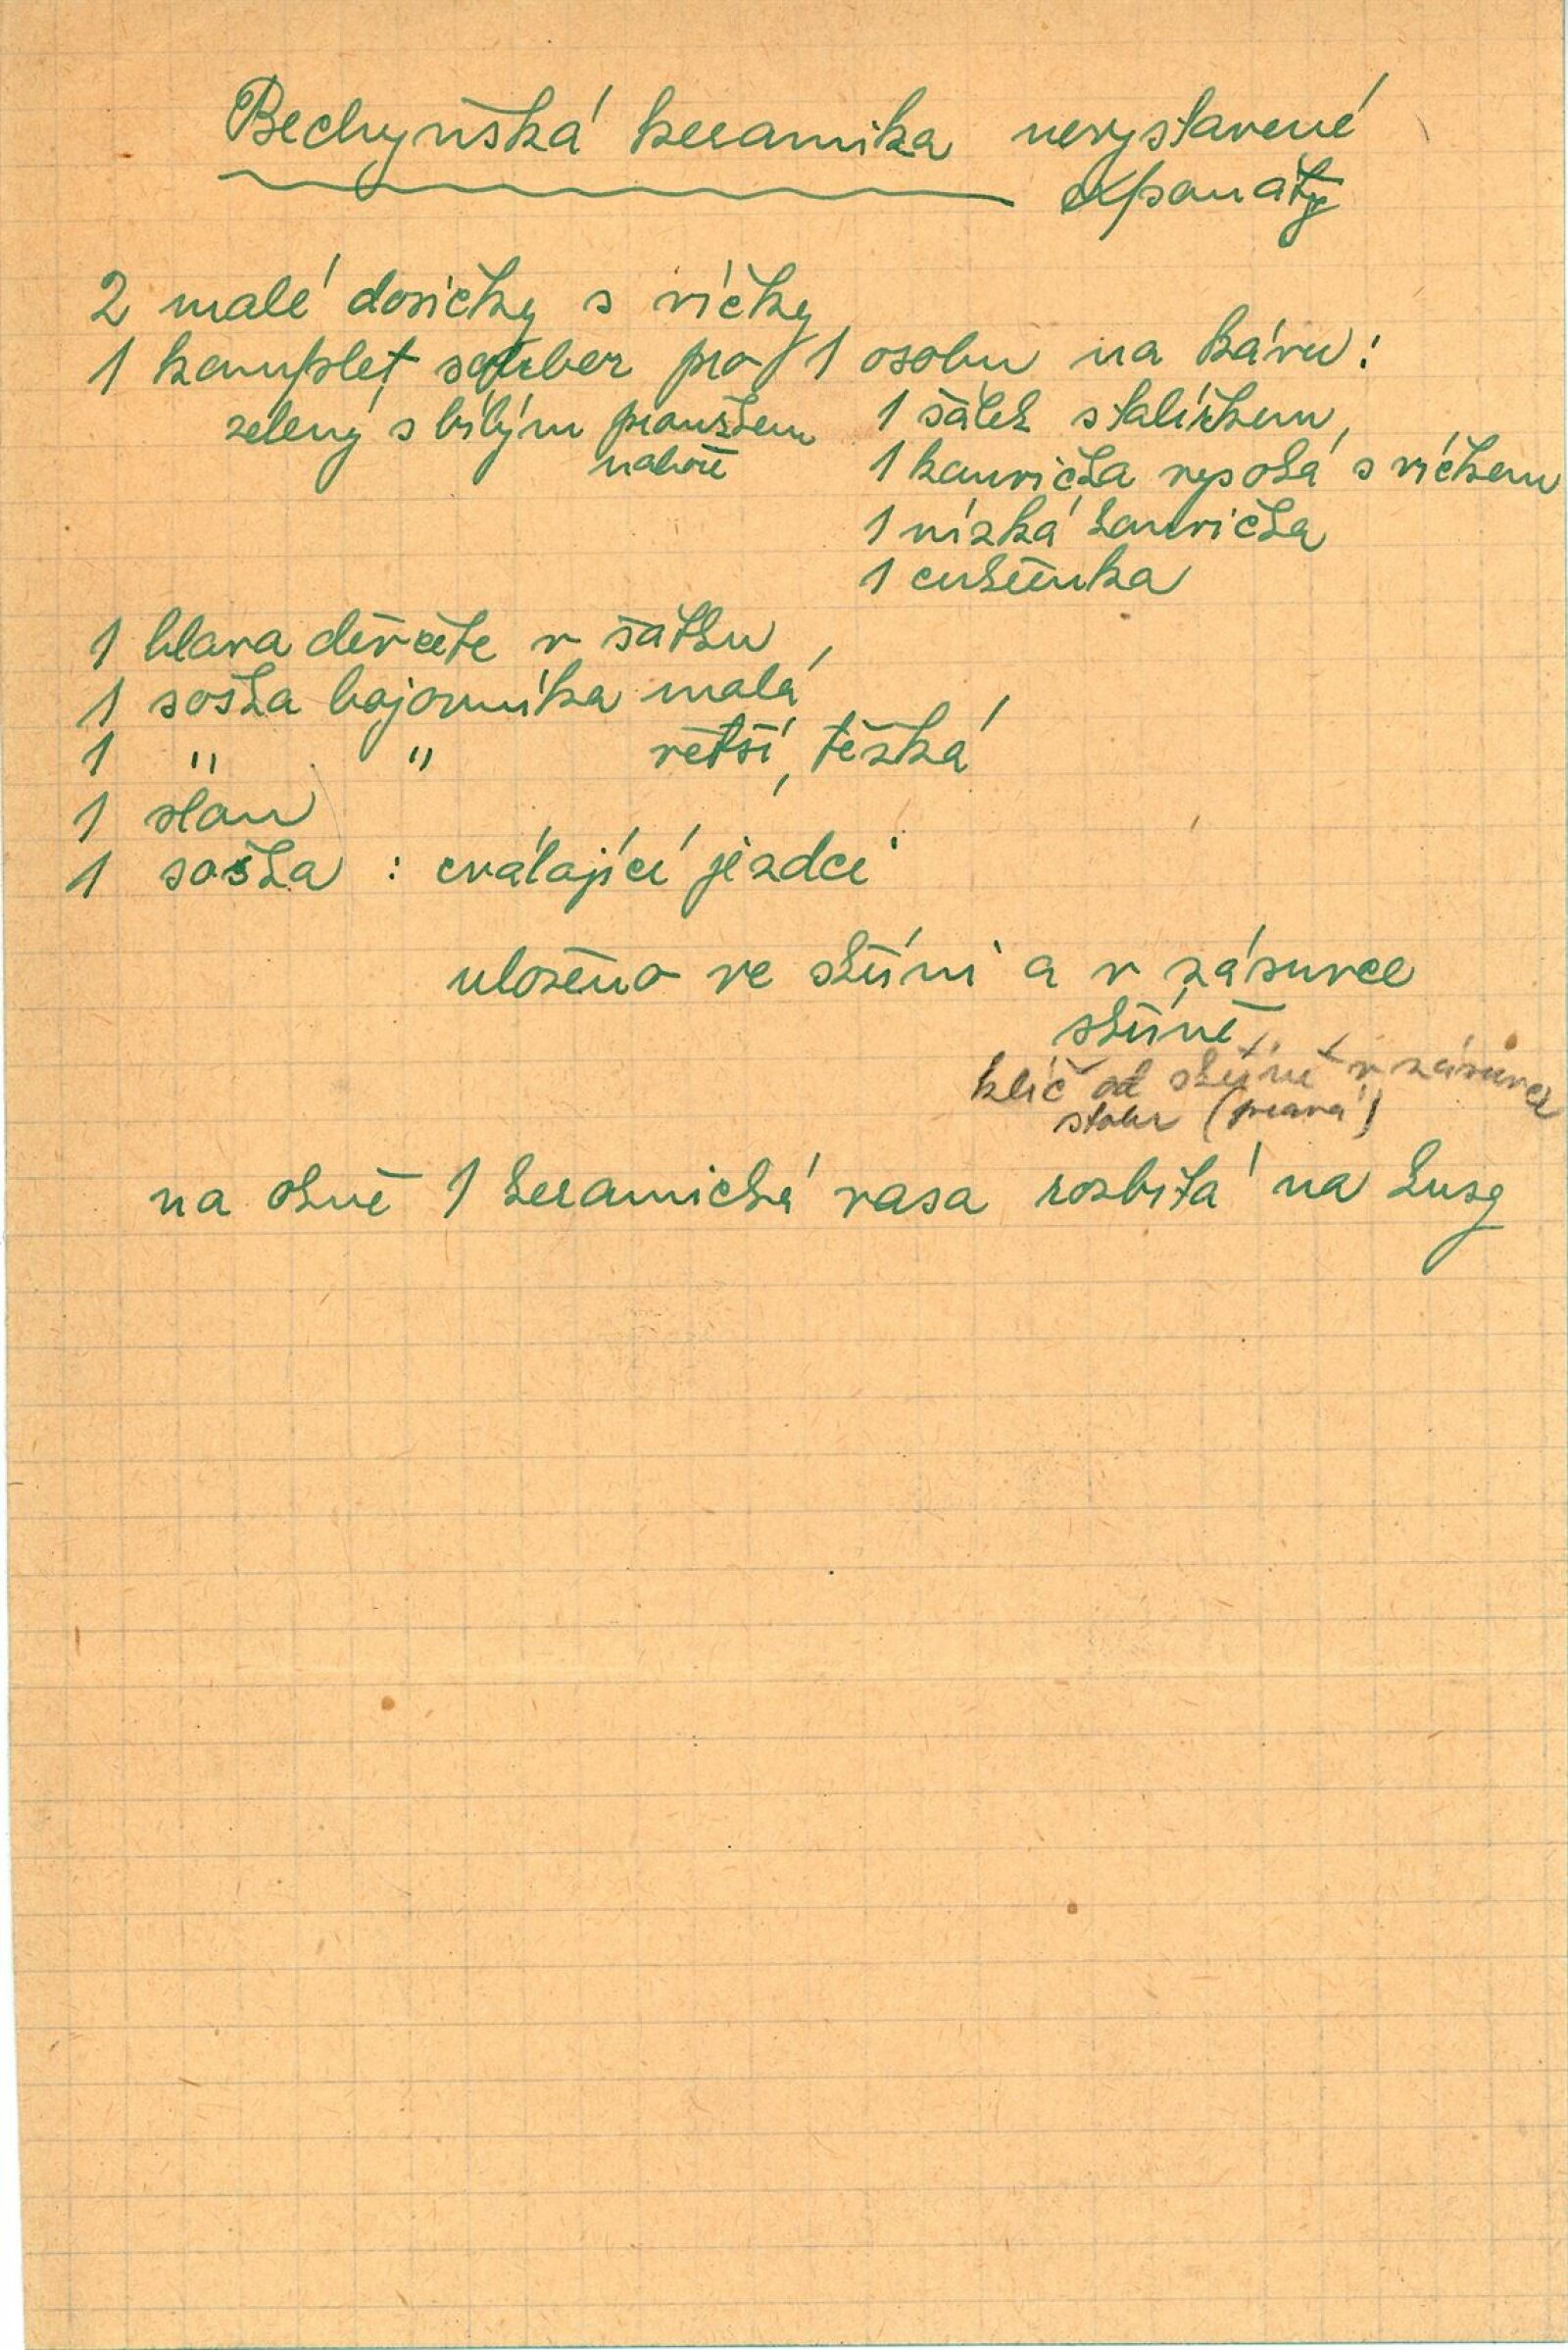 Bechyňská keramika nevystavené
exponáty
2 malé dosičky s víčky
1 komplet soubor pro 1 osobu na kávu:
zelený s bílým proužkem
nahoře
1 šálek s talířkem,
1 konvička vysoká s víčkem
1 nízká konvička
1 cukřenka
1 hlava děvčete v šátku
1 soška bojovníka malá
1 " " větší, těžká
1 slon
1 soška : cválající jezdci
uloženo ve skříni a v zásuvce
skříně
klíč od skříně v zásuvce
stolu (pravá)
na okně 1 keramická vasa rozbitá na kusy